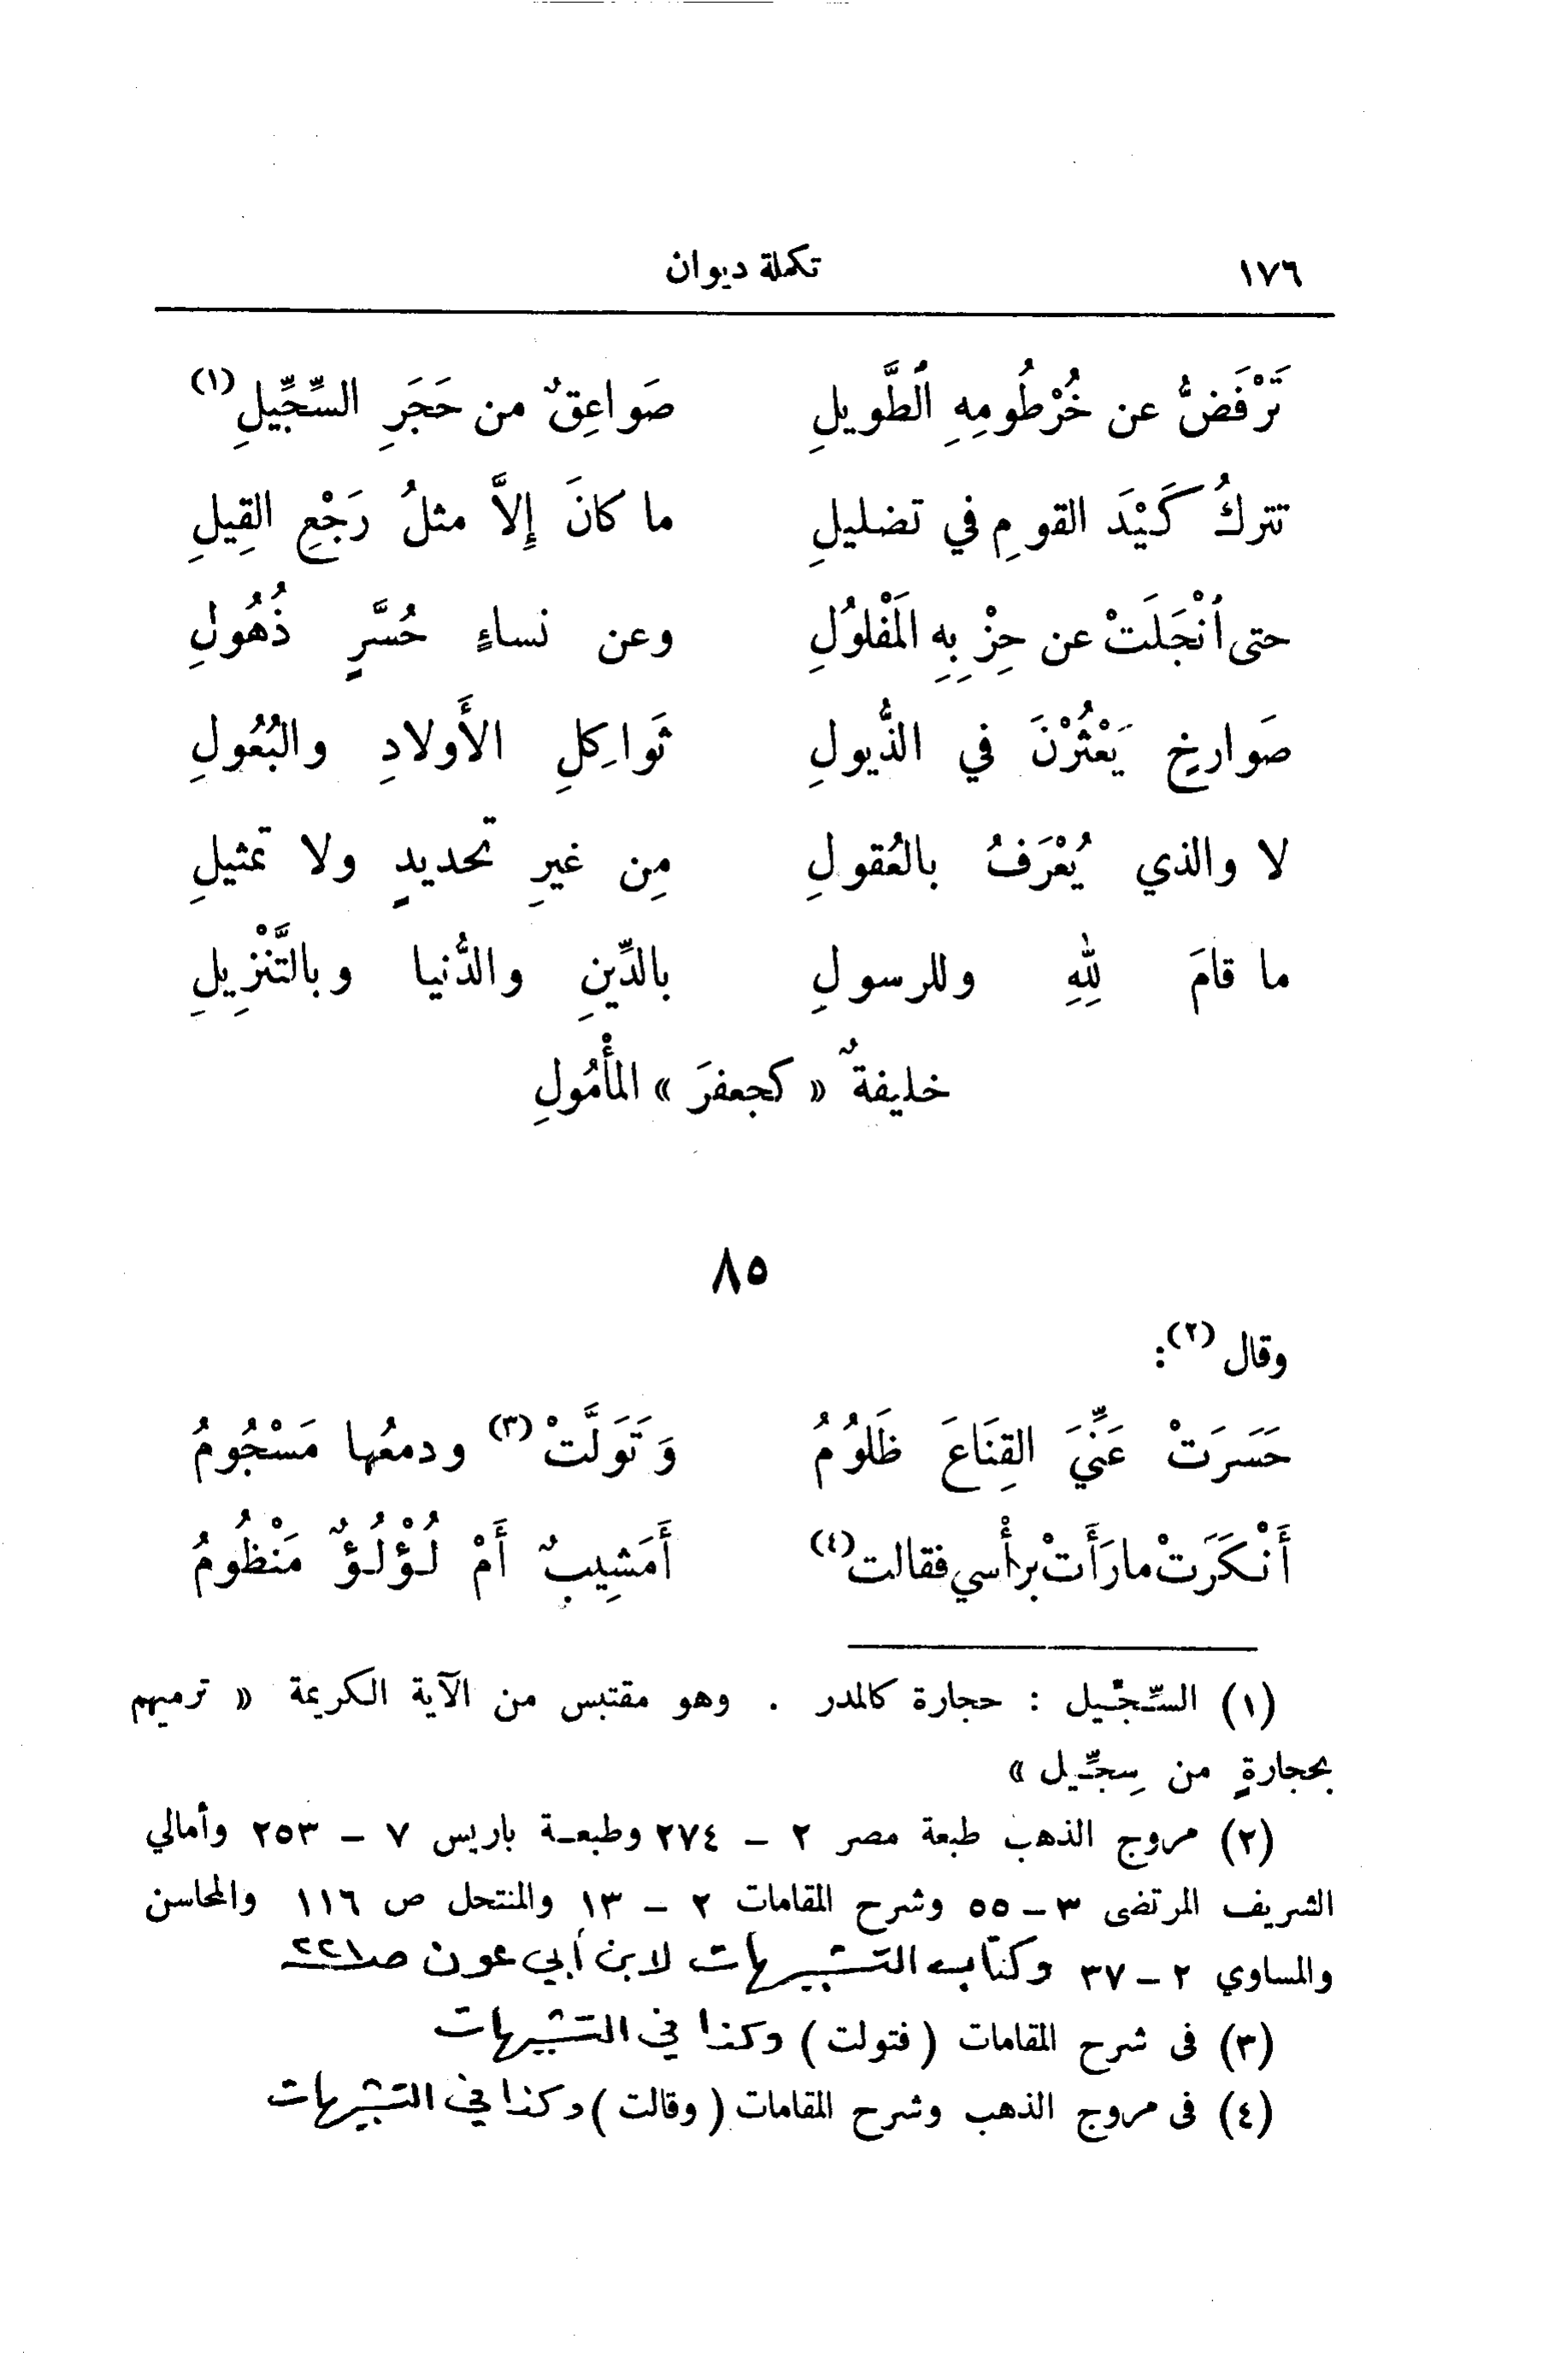 ١٧٦ تكملة ديوان
تَرْفَضُّ عن خُرْطُومِهِ ٱلطَّويلِ صَواعِقٌ من حَجَرِ السِّجِّيلِ (١)
تتركُ كَيْدَ القومِ في تضليلِ ما كانَ إِلاَّ مثلُ رَجْعِ القِيلِ
حتى ٱنْجَلَتْ عن حِزْبِهِ المَفْلُولِ وعن نساءٍ حُسَّرٍ ذُهُولِ
صَوارِخٍ يَعْثُرْنَ في الذُّيولِ ثَواكِلِ الأَولادِ والبُعُولِ
لا والذي يُعْرَفُ بالعُقولِ مِن غيرِ تحديدٍ ولا تمثيلِ
ما قامَ لِلهِ وللرسولِ بالدِّينِ والدُّنيا وبالتَّنْزِيلِ
خليفةٌ « كجعفرَ » المأْمُولِ
٨٥
وقال (٢):
حَسَرَتْ عَنِّيَ القِنَاعَ ظَلُومُ وَتَوَلَّتْ (٣) ودمعُها مَسْجُومُ
أَنْكَرَتْ ما رَأَتْ برأْسي فقالت (٤) أَمَشِيبٌ أَمْ لُؤْلُؤٌ مَنْظُومُ
(١) السِّجِّيل : حجارة كالمدر . وهو مقتبس من الآية الكريمة « ترميهم
بحجارةٍ من سِجِّيل »
(٢) مروج الذهب طبعة مصر ٢ – ٢٧٤ وطبعة باريس ٧ – ٢٥٣ وأمالي
الشريف المرتضى ٣ – ٥٥ وشرح المقامات ٢ – ١٣ والمنتحل ص ١١٦ والمحاسن
والمساوي ٢ – ٣٧ وكتاب التشبيهات لابن أبي عون ص ٢٢١
(٣) فى شرح المقامات ( فتولت ) وكذا في التشبيهات
(٤) فى مروج الذهب وشرح المقامات ( وقالت ) وكذا في التشبيهات